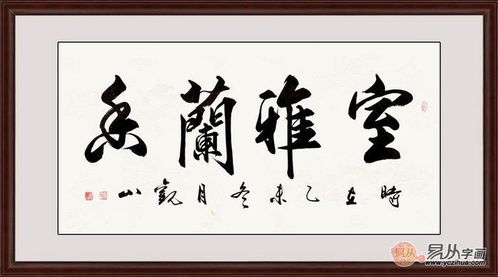 室雅蘭香
時在乙未冬月觀山
易从字画
www.yczihua.com